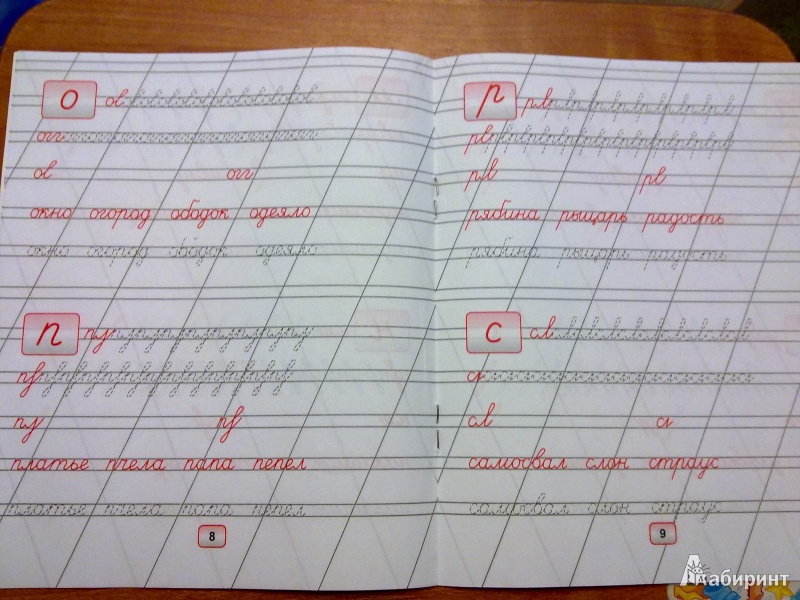 о
окно огород ободок одеяло
окно огород ободок одеяло
п пу
пу
платье пчела папа пепел
платье пчела папа пепел
8
р рв
рв
рв рв
рябина рыцарь радость
рябина рыцарь радость
с
самосвал слон страус
самосвал слон страус
9
Лабиринт